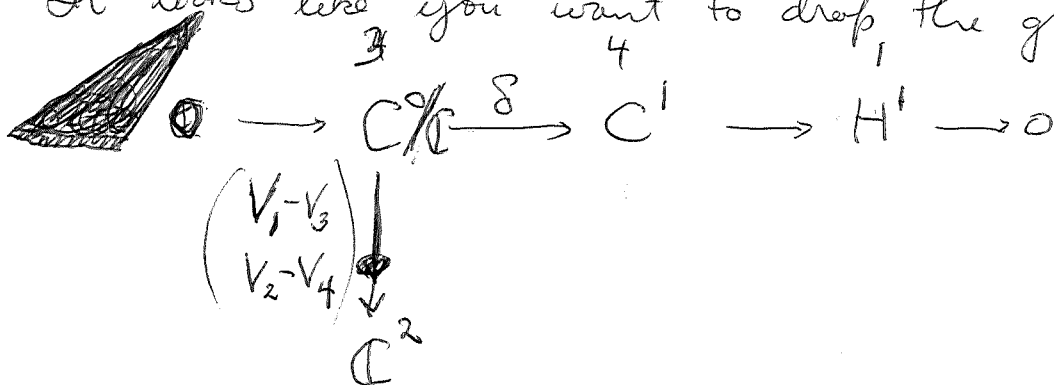 It looks like you want to drop the g
3 4 1
0 → C⁰/ℂ —δ→ C¹ → H¹ → 0
(V₁-V₃
V₂-V₄) ↓
ℂ²